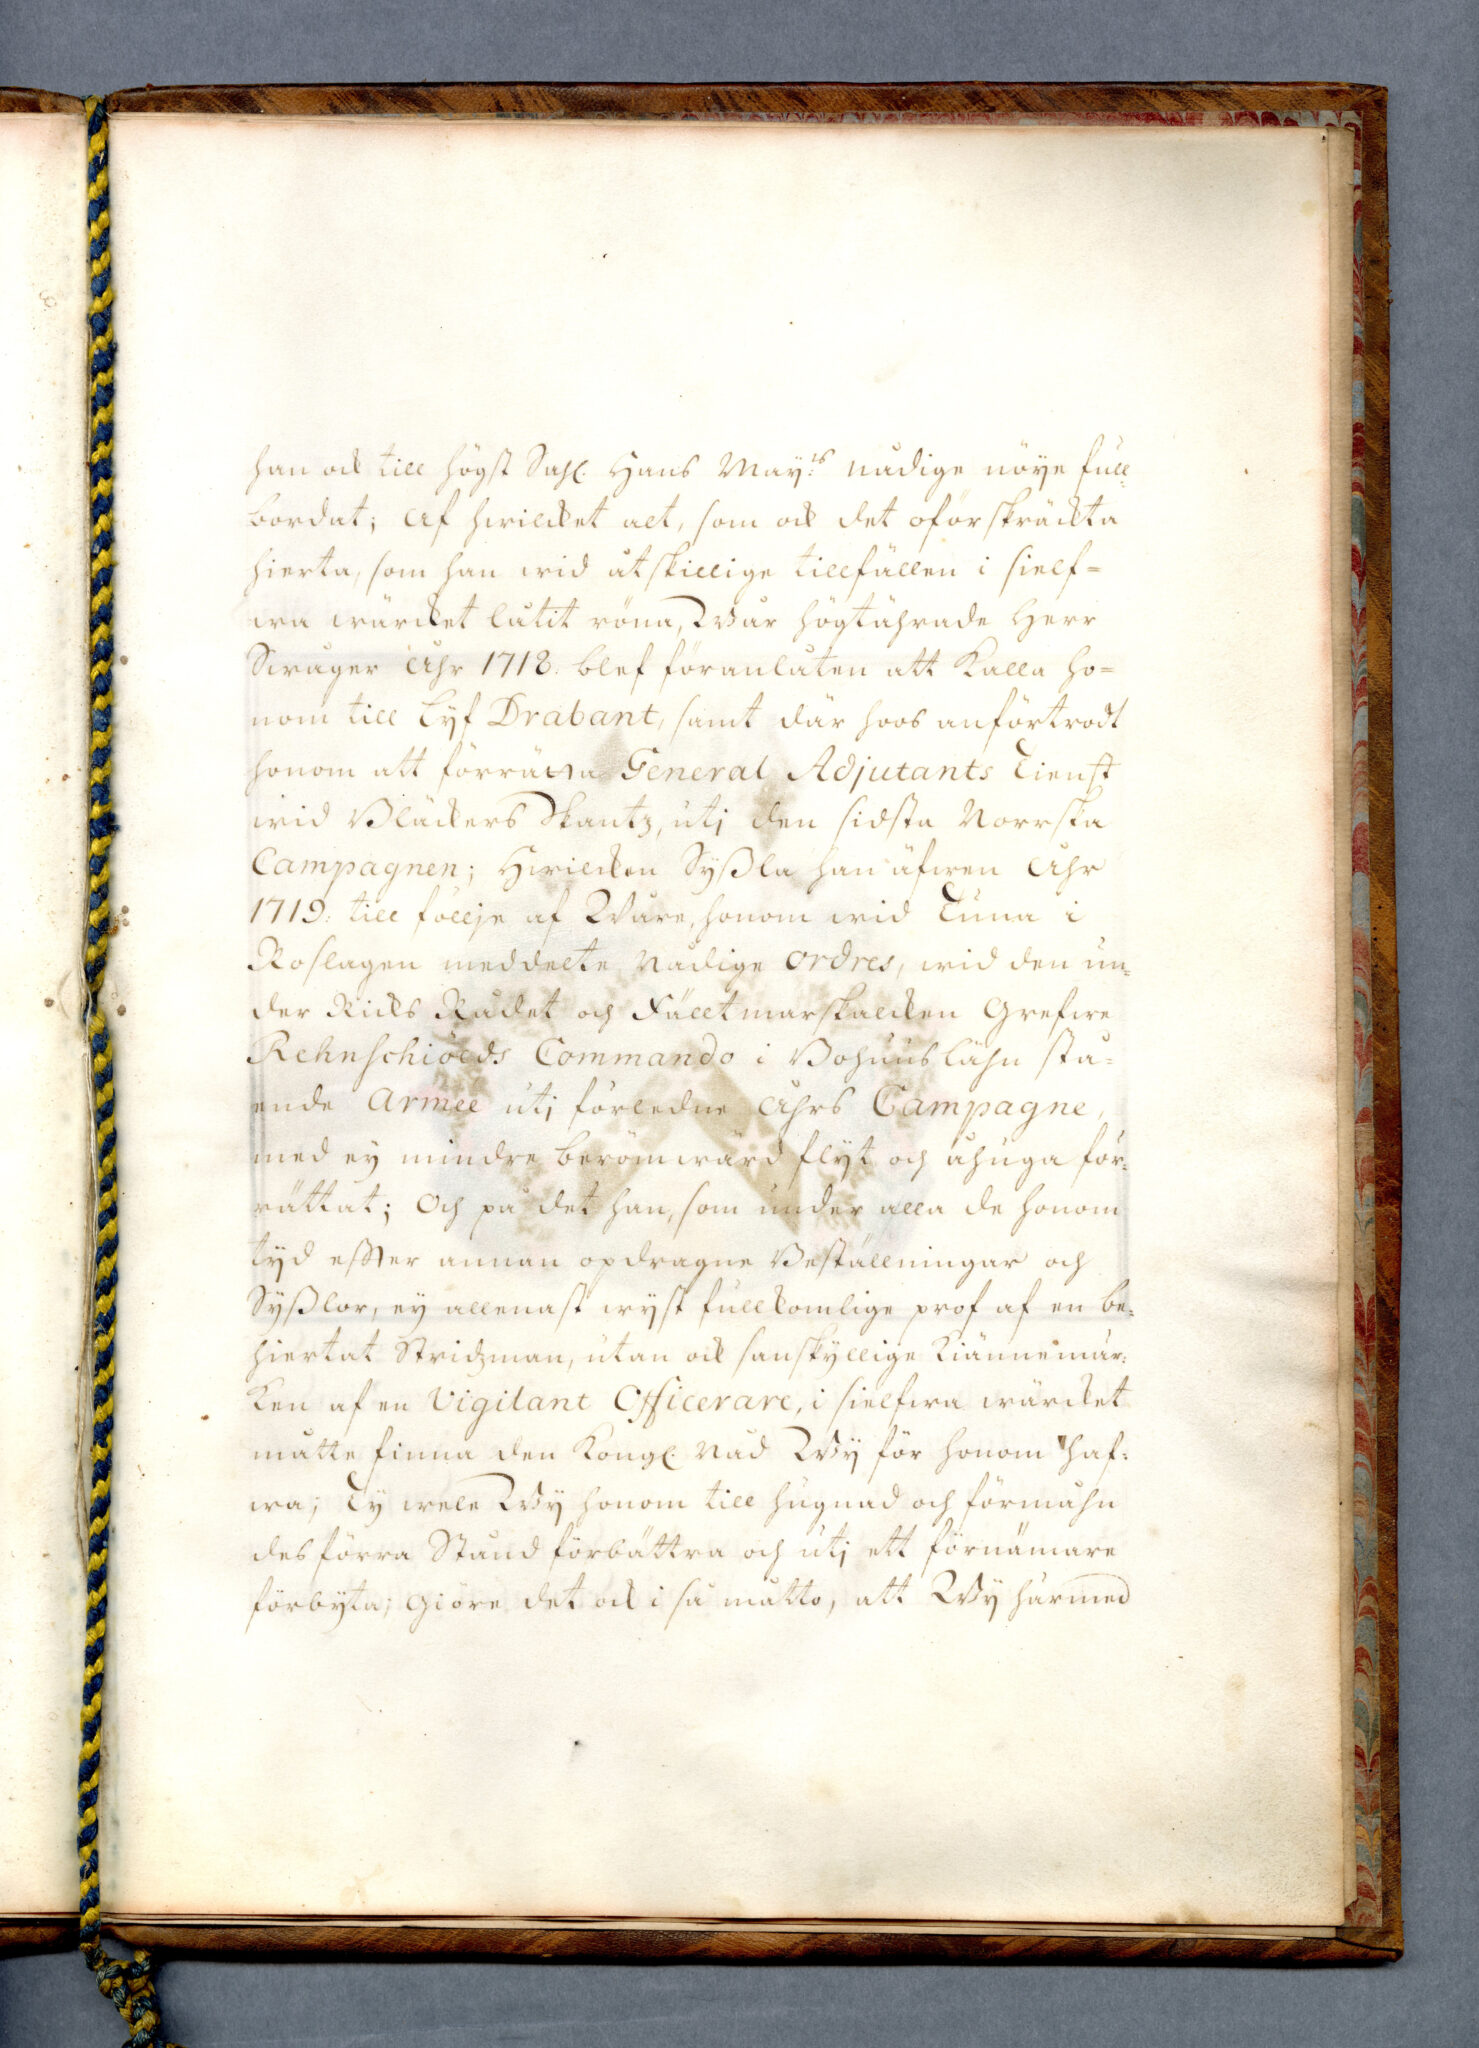 han ock till högst Sahl. Hans May:ts nådige nöye full-
bordat; Af hwilcket alt, som ock det oförskräckta
hierta, som han wid åtskillige tillfällen i sielf-
wa wärcket låtit röna, Wår högtährade Herr
Swåger Åhr 1718. blef föranlåten att kalla ho-
nom till Lyf Drabant, samt där hoos anförtrodt
honom att förrätta General Adjutants Tienst
wid Bläckers Skantz, utj den sidsta Norrska
Campagnen; Hwilcken Syßla han äfwen Åhr
1719. till föllje af Wåre, honom wid Tuna i
Roslagen meddelte Nådige ordres, wid den un-
der Ricks Rådet och Fältmarskalcken Grefwe
Rehnschiölds Commando i Bohuuslähn stå-
ende Armée utj förledne Åhrs Campagne,
med ey mindre berömwärd flyt och åhuga för-
rättat; Och på det han, som under alla de honom
tyd effter annan opdragne Beställningar och
Syßlor, ey allenast wyst fullkomlige prof af en be-
hiertat Stridzman, utan ock sanskyllige Kiännemär-
ken af en Vigilant Officerare, i sielfwa wärcket
måtte finna den Kongl. Nåd Wy för honom haf-
wa; Ty wele Wy honom till hugnad och förmåhn
des förra Stånd förbättra och utj ett förnämare
förbyta; Giöre det ock i så måtto, att Wy härmed